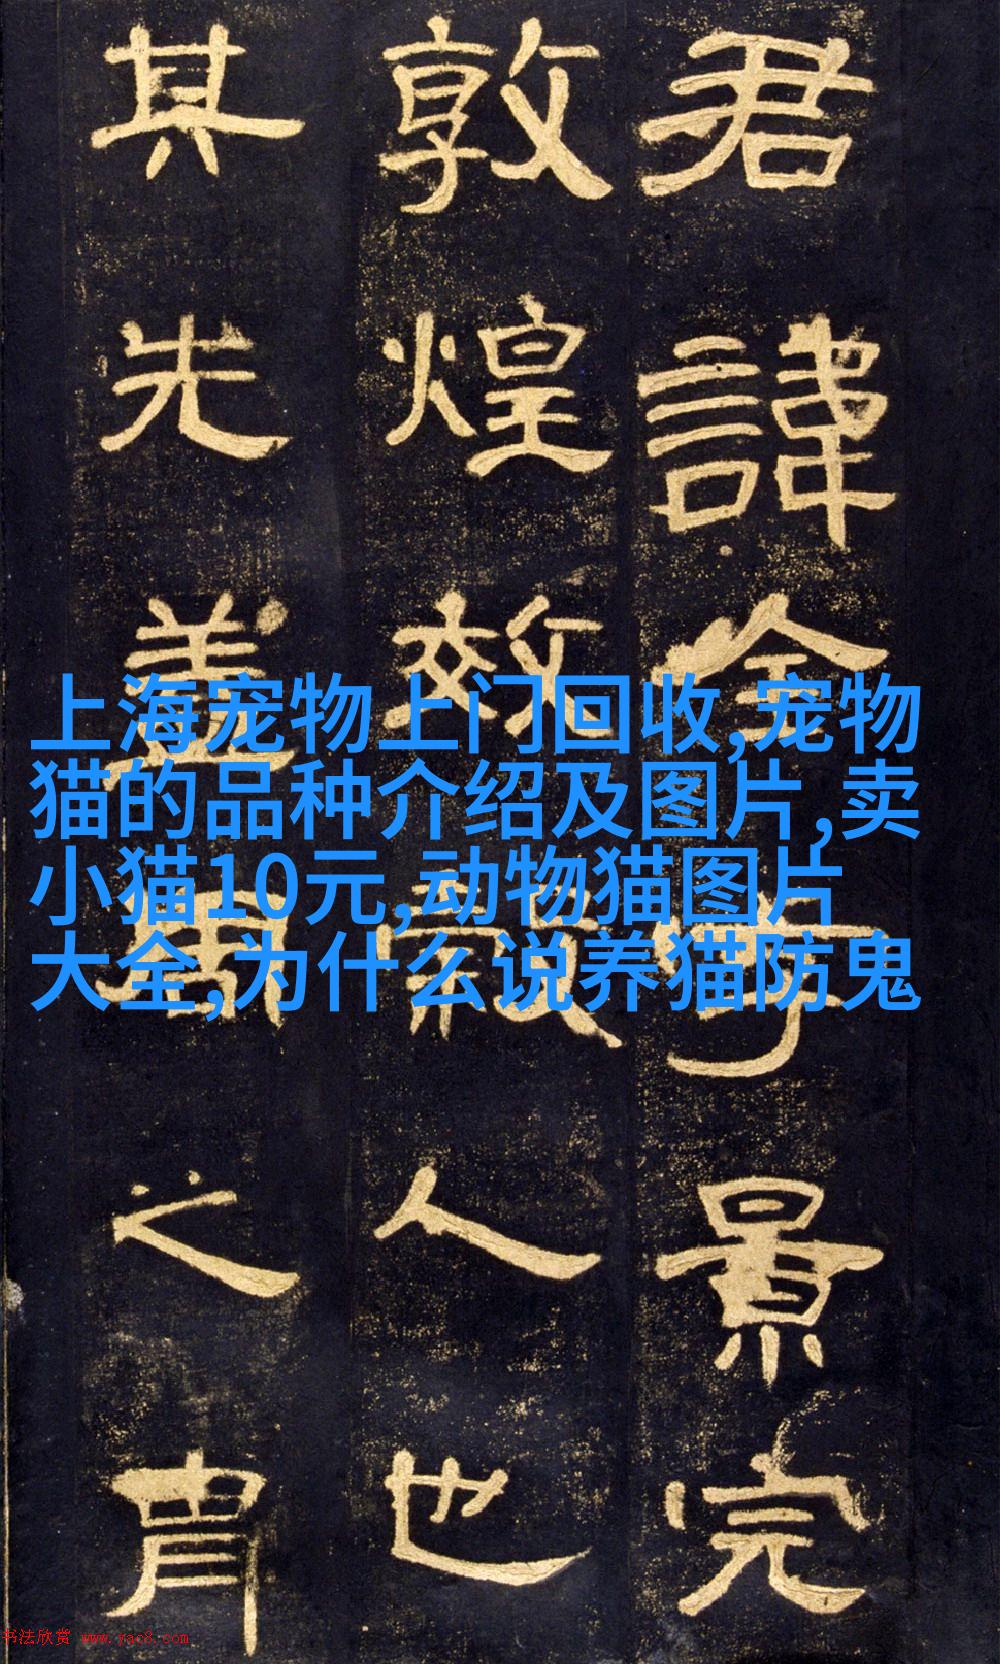 君諱全字景完
敦煌效穀人也
其先蓋周之胄
上海宠物上门回收,宠物
猫的品种介绍及图片,卖
小猫10元,动物猫图片
大全,为什么说养猫防鬼
书法欣赏 www.yac8.com